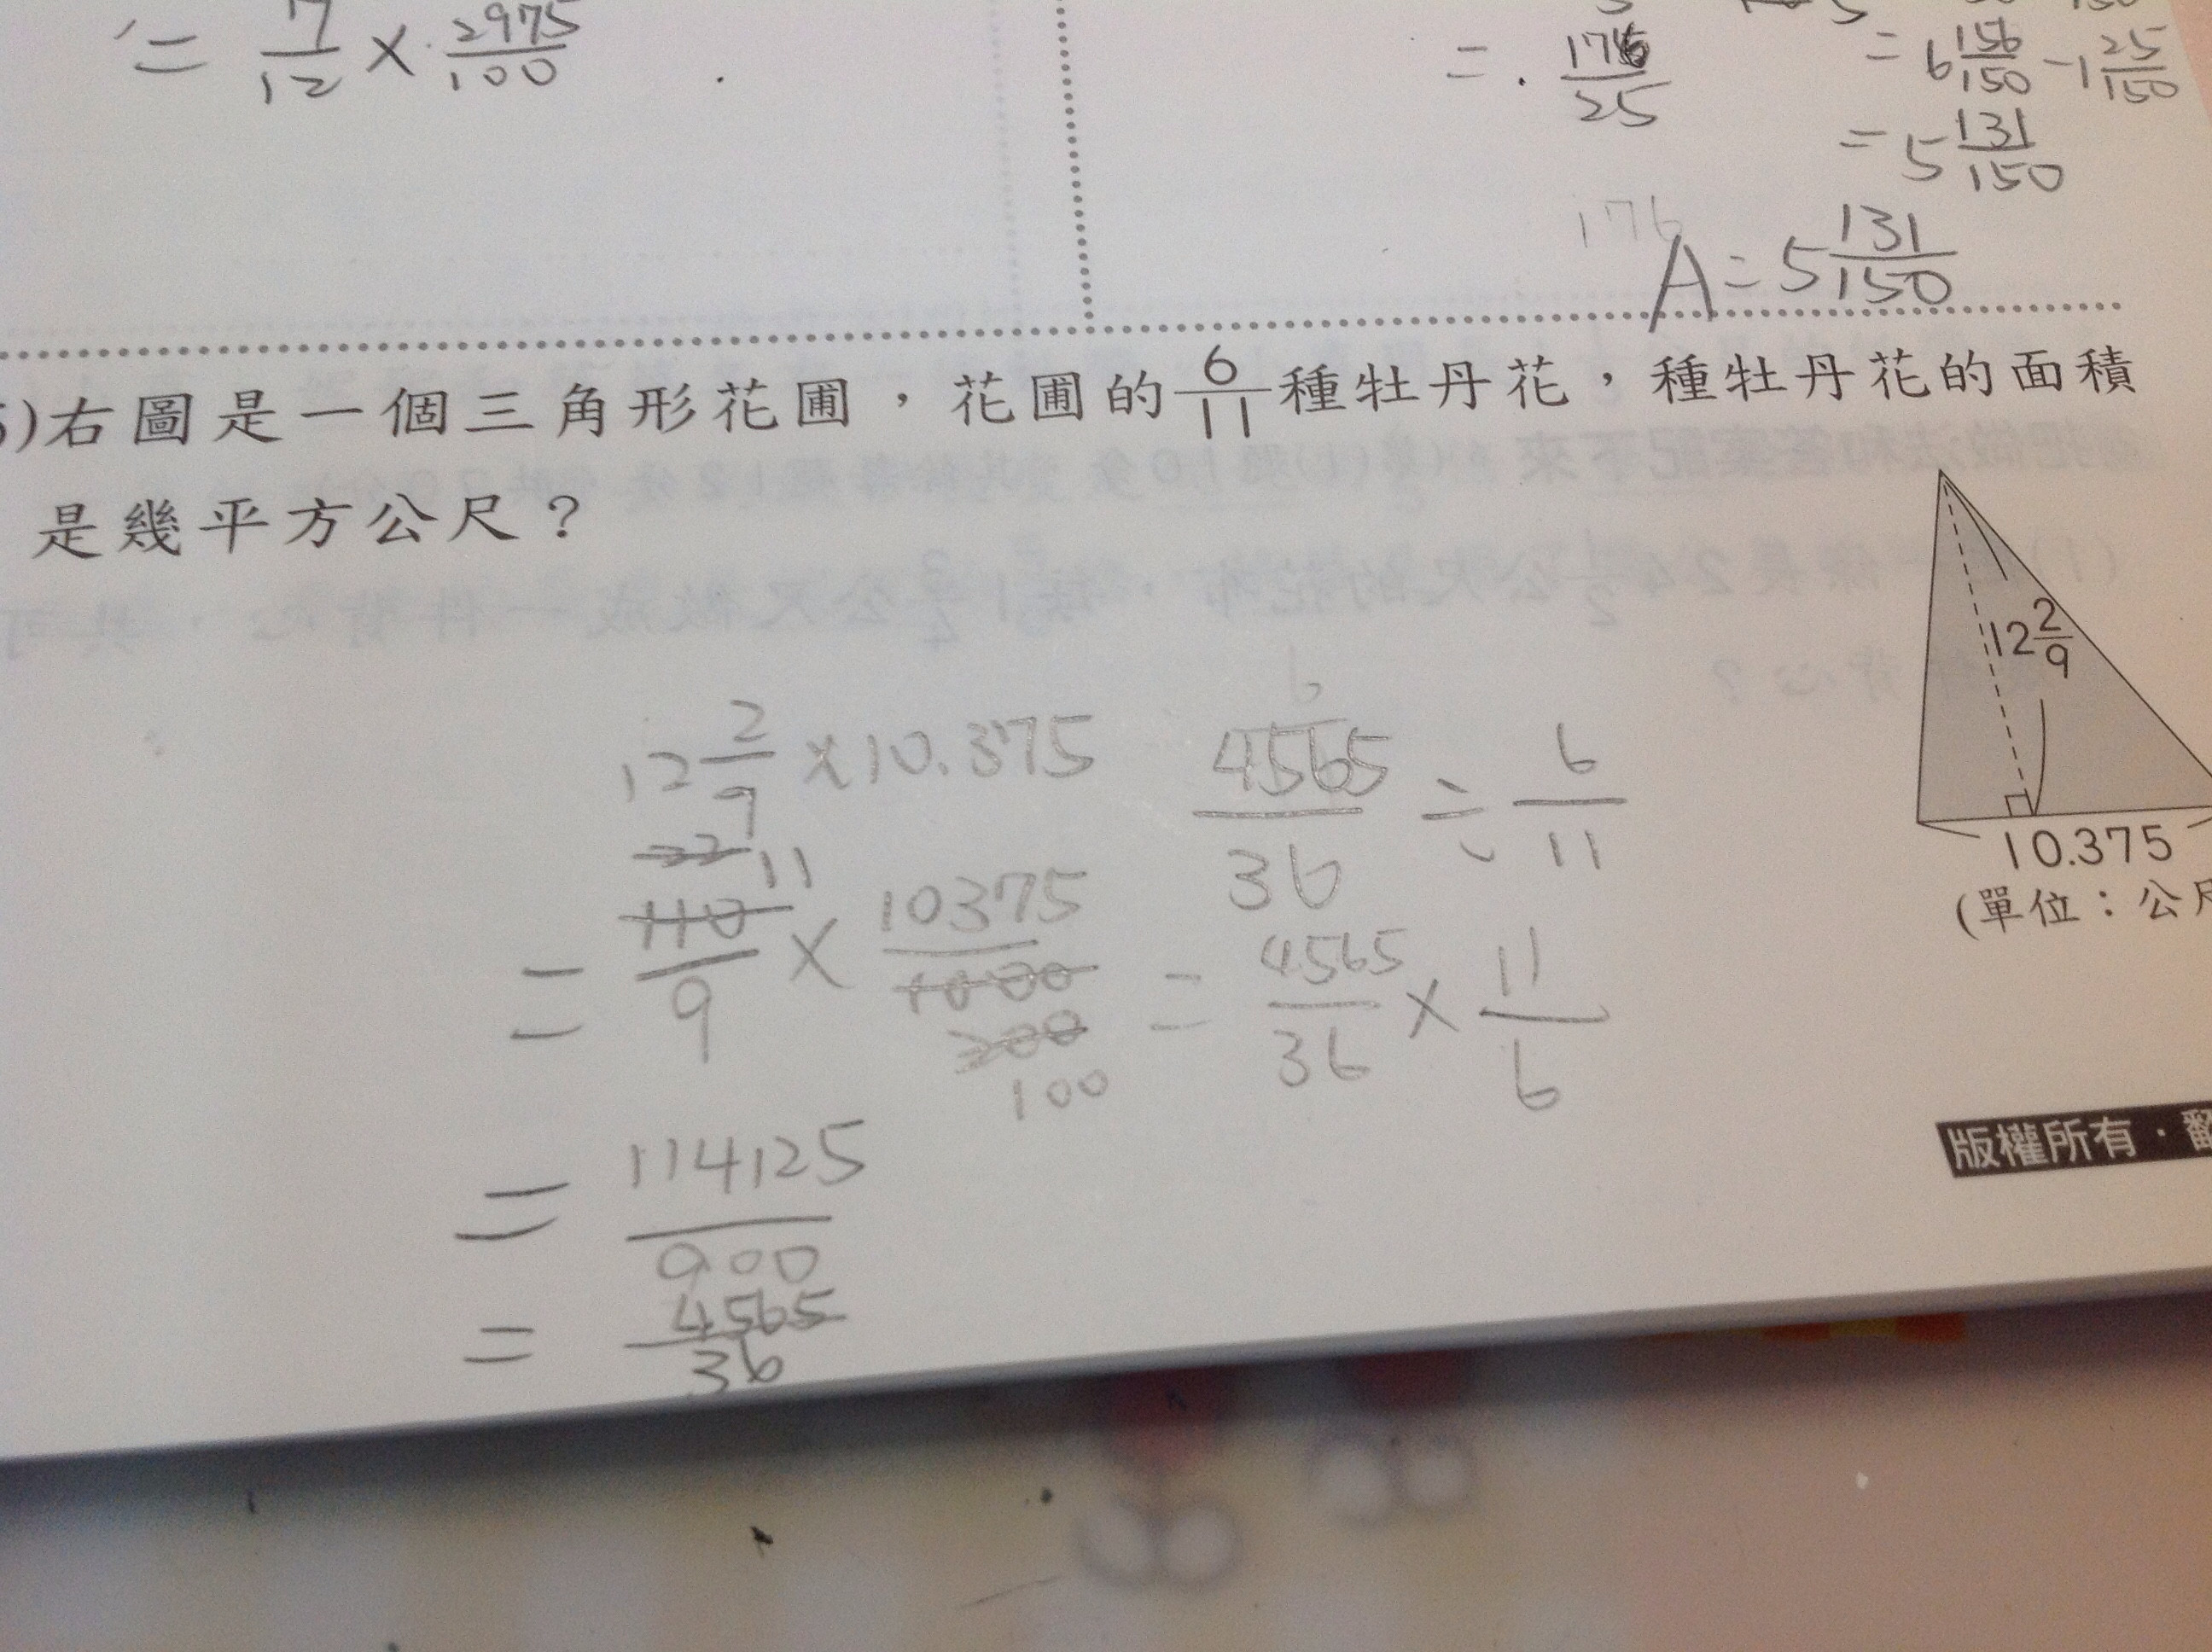 = 7/12 × 2975/100
= 176/25
= 6 156/150 - 1 25/150
= 5 131/150
176
A = 5 131/150
)右圖是一個三角形花圃，花圃的6/11種牡丹花，種牡丹花的面積
是幾平方公尺？
12 2/9
10.375
(單位：公尺
12 2/9 × 10.375
22 11
= 110/9 × 10375/1000
200
100
= 114125/900
= 4565/36
6
4565/36 ÷ 6/11
= 4565/36 × 11/6
版權所有・翻